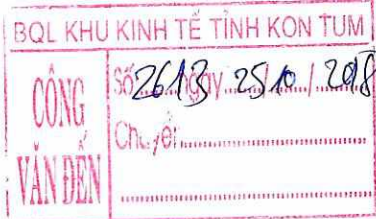 BQL KHU KINH TẾ TỈNH KON TUM
CÔNG
VĂN ĐẾN
Số 2613 ngày 25/10/2018
Chuyển